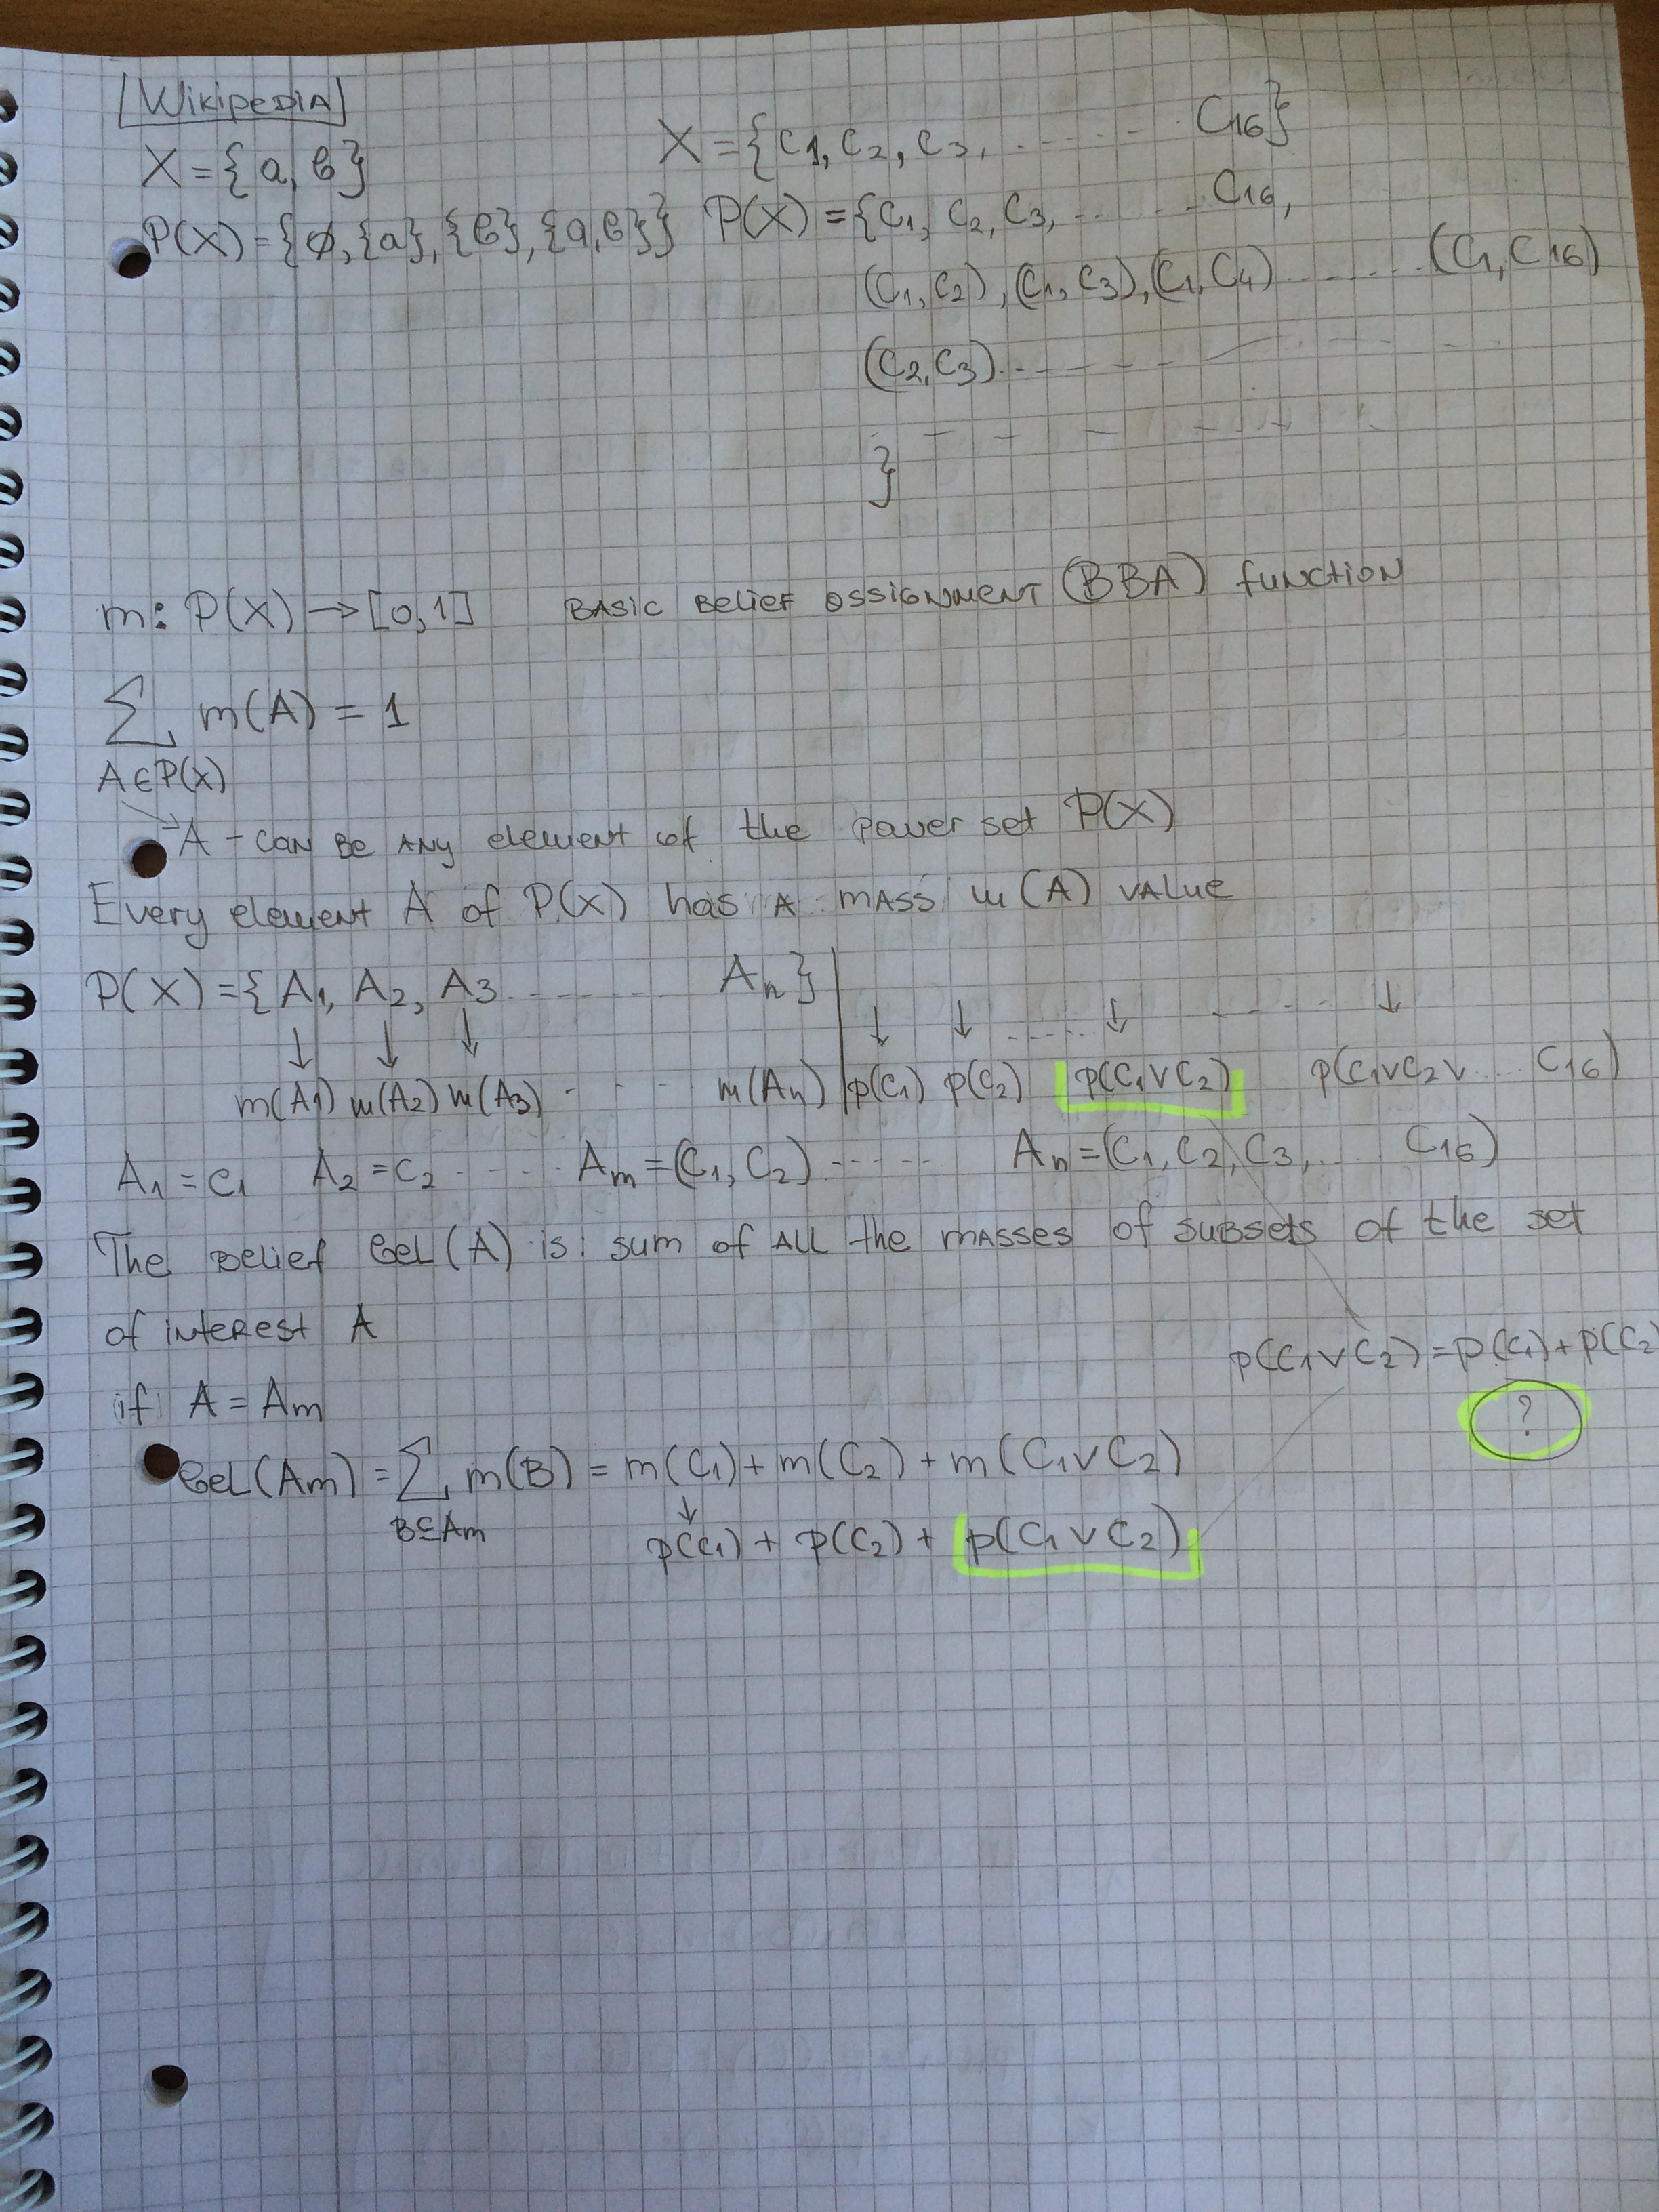 WikipeDiA
X = {a, b}
P(X) = {∅, {a}, {b}, {a, b}}
X = {C1, C2, C3, ........ C16}
P(X) = {C1, C2, C3, ........ C16,
(C1, C2), (C1, C3), (C1, C4) ........ (C1, C16)
(C2, C3) ........
}
m: P(X) → [0,1] BASIC BELIEF ASSIGNMENT (BBA) FUNCTION
∑ m(A) = 1
A∈P(X)
A - CAN BE ANY element of the power set P(X)
Every element A of P(X) has A MASS m(A) VALUE
P(X) = {A1, A2, A3 ........ An}
↓ ↓ ↓ ↓ ↓ ...... ↓ ...... ↓
m(A1) m(A2) m(A3) ... m(An) | p(C1) p(C2) p(C1∨C2) p(C1∨C2∨ .... C16)
A1 = C1 A2 = C2 ...... Am = (C1, C2) ...... An = (C1, C2, C3, .... C16)
The BELIEF BEL(A) is: sum of ALL the MASSES of SUBSETS of the set
of INTEREST A
p(C1∨C2) = p(C1) + p(C2
?
if A = Am
BEL(Am) = ∑ m(B) = m(C1) + m(C2) + m(C1∨C2)
B⊆Am
↓
p(C1) + p(C2) + p(C1∨C2)